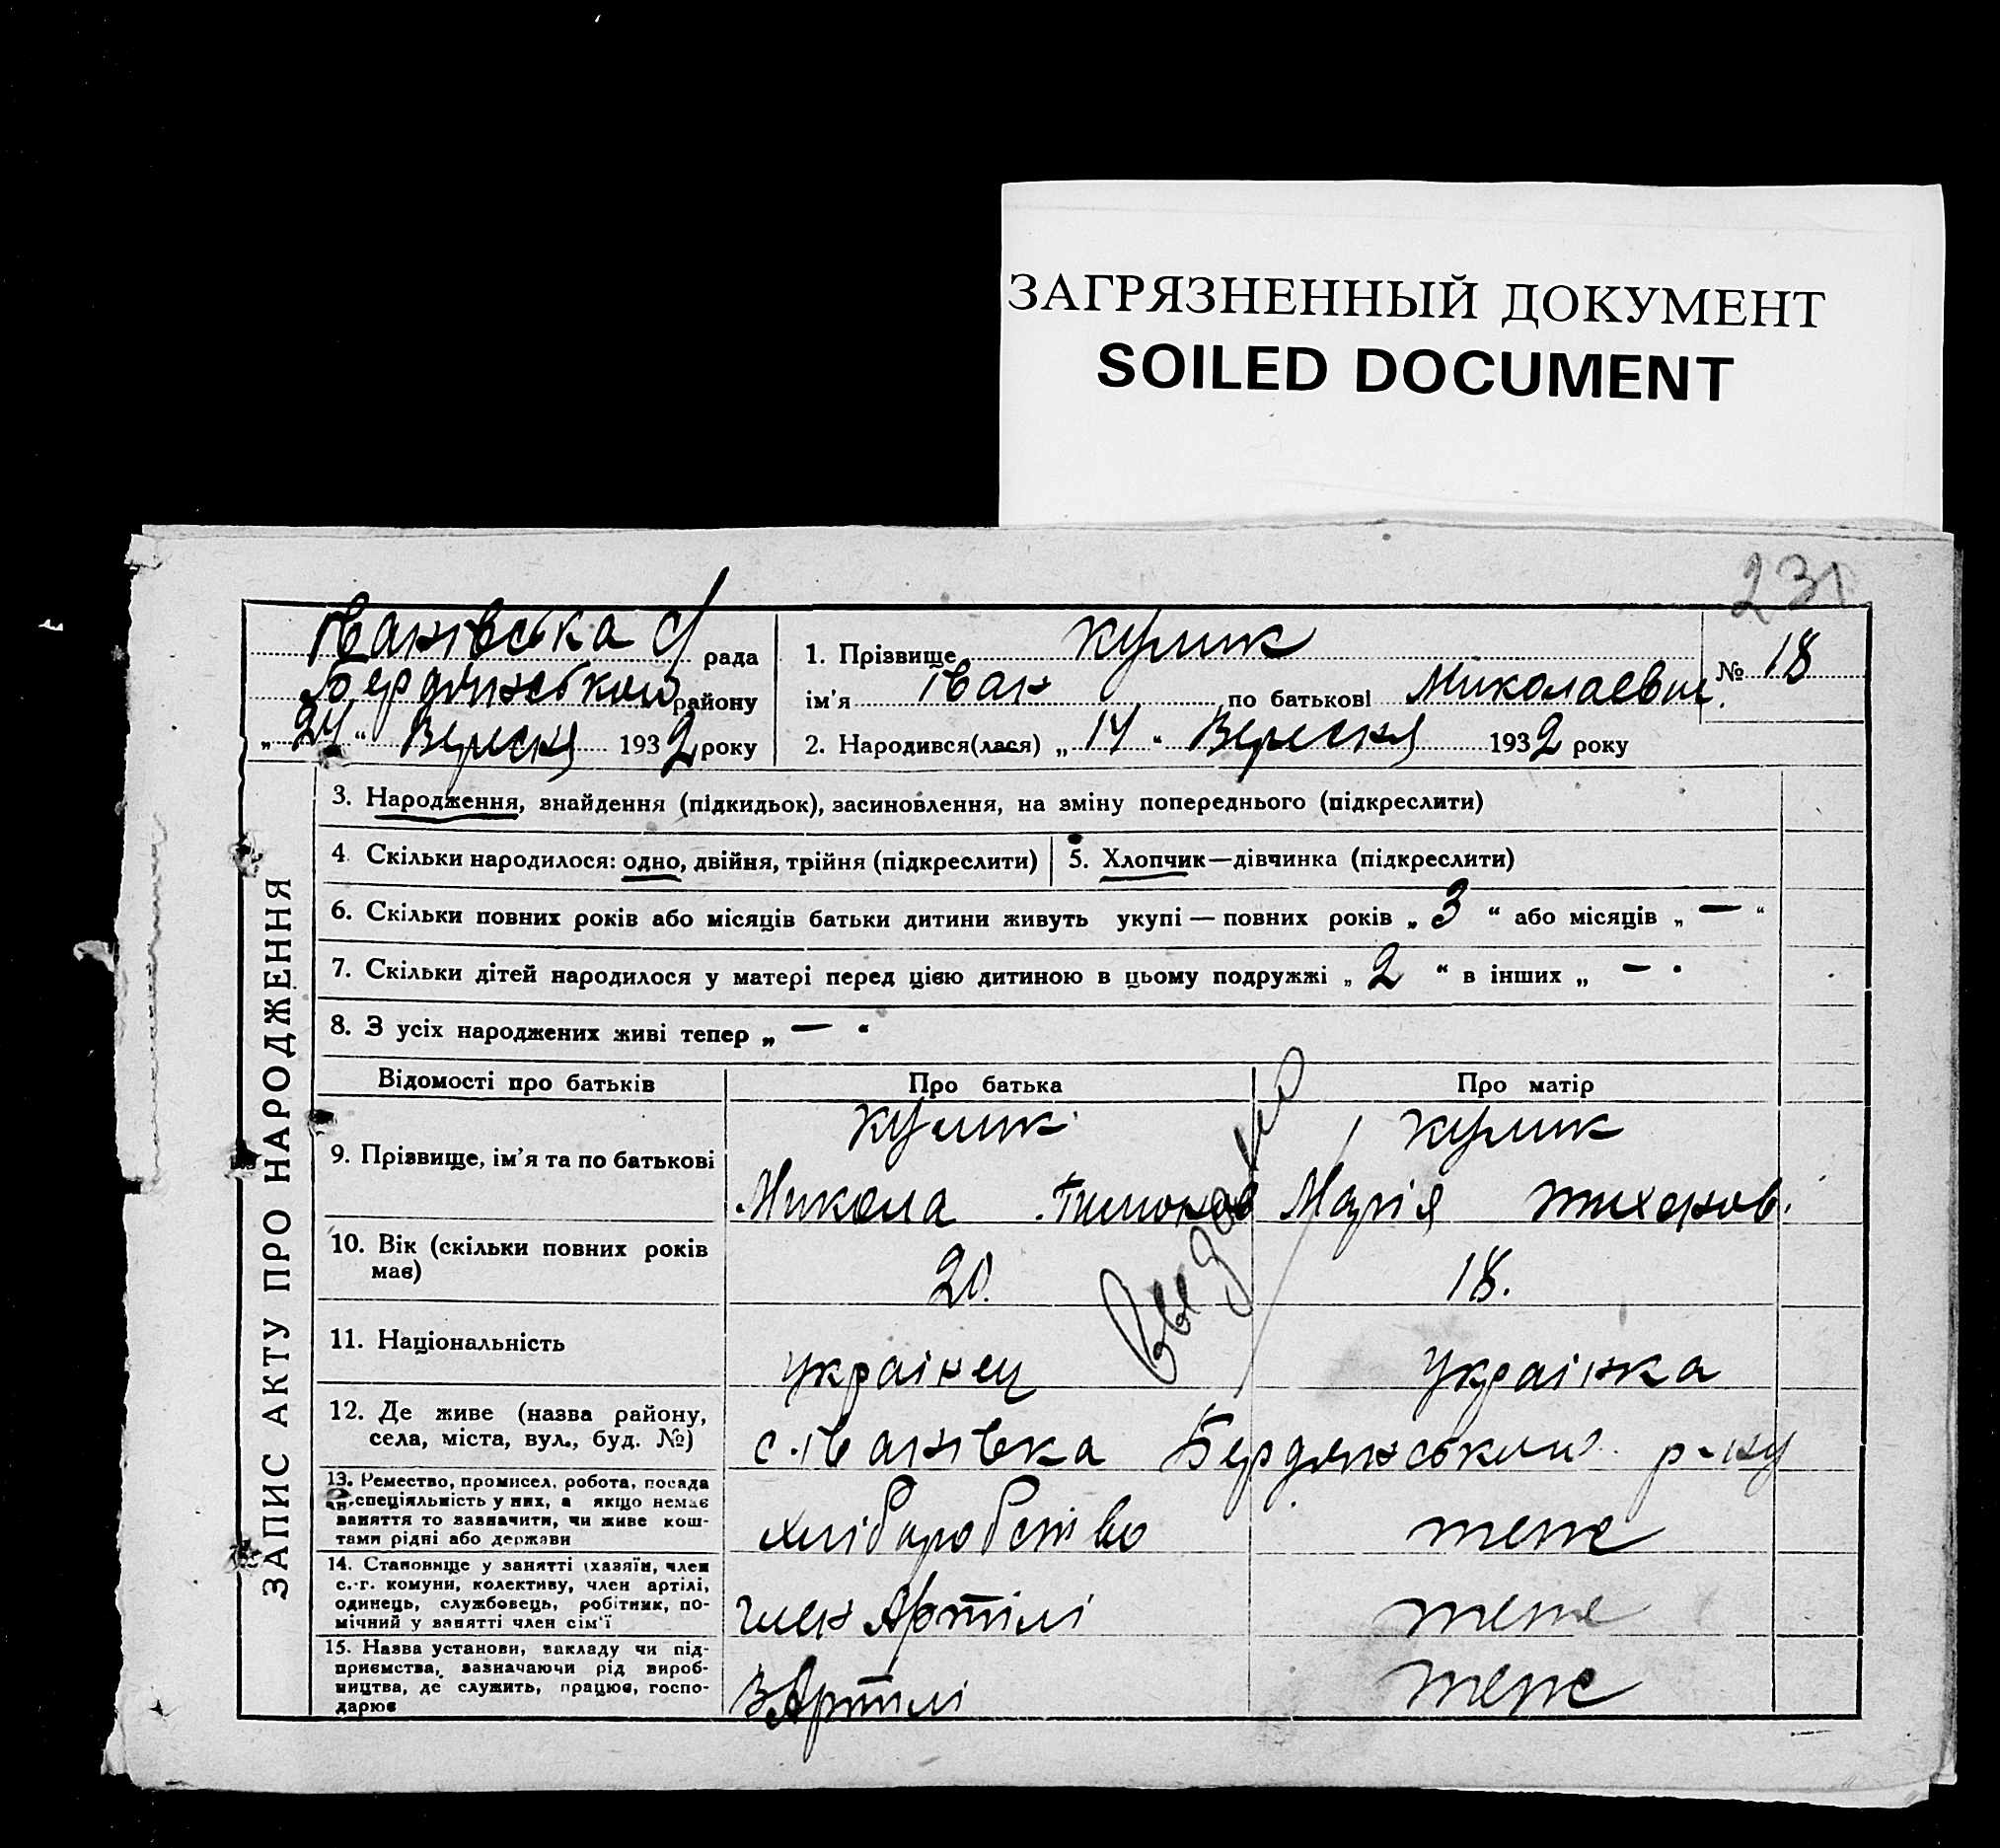 ЗАГРЯЗНЕННЫЙ ДОКУМЕНТ
SOILED DOCUMENT
231
Іванівська с/ рада
Бердянською району
„ 24 “ Вересня 1932 року
1. Прізвище Кулик
ім'я Іван по батькові Миколаевич.
№ 18
2. Народився(лася) „ 14 “ Вересня 1932 року
ЗАПИС АКТУ ПРО НАРОДЖЕННЯ
3. Народження, знайдення (підкидьок), засиновлення, на зміну попереднього (підкреслити)
4. Скільки народилося: одно, двійня, трійня (підкреслити)
5. Хлопчик—дівчинка (підкреслити)
6. Скільки повних років або місяців батьки дитини живуть укупі — повних років „ 3 “ або місяців „ — “
7. Скільки дітей народилося у матері перед цією дитиною в цьому подружжі „ 2 “ в інших „ — “
8. З усіх народжених живі тепер „ — “
Відомості про батьків Про батька Про матір
9. Прізвище, ім'я та по батькові
Кулик Кулик
Микола Марія Тихонов.
10. Вік (скільки повних років
має)
20. 18.
11. Національність
українец українка
12. Де живе (назва району,
села, міста, вул., буд. №)
с. Іванівка Бердянською р-ну
13. Ремество, промисел, робота, посада
спеціяльність у них, а якщо немає
заняття то зазначити, чи живе кош-
тами рідні або держави
хліборобство теже
14. Становище у занятті (хазяїн, член
с.-г. комуни, колективу, член артілі,
одинець, службовець, робітник, по-
мічний у занятті член сім'ї
член Артілі теже
15. Назва установи, закладу чи під-
приємства, зазначаючи рід вироб-
ництва, де служить, працює, госпо-
дарює
В Артілі теже
Выдано